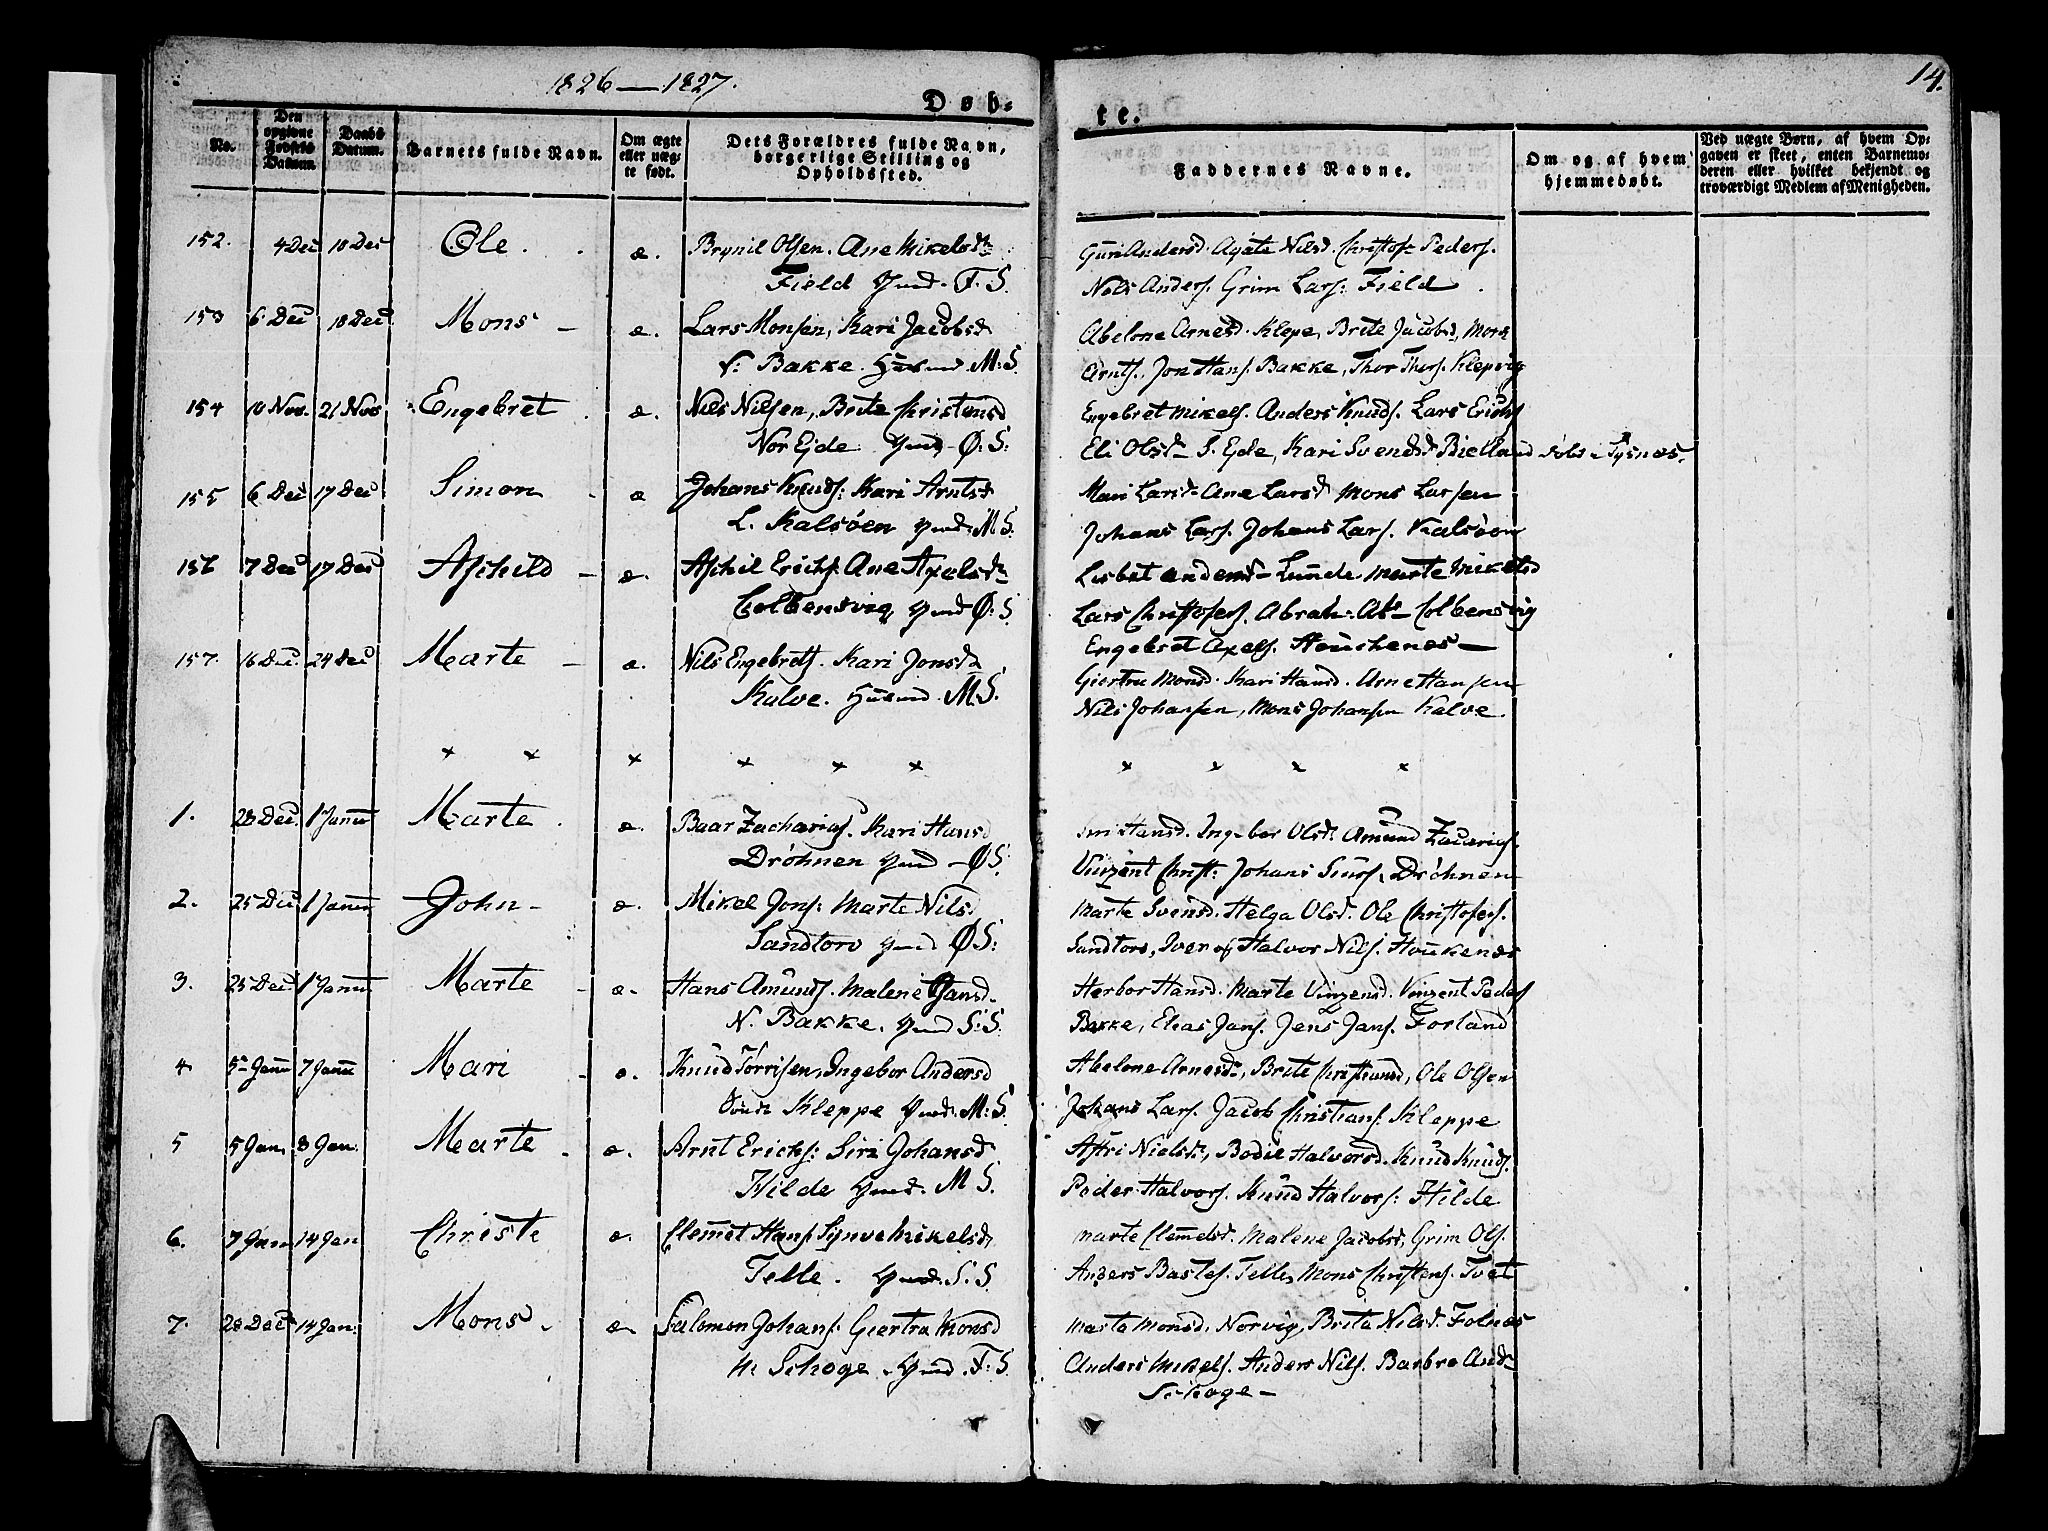 1826 — 1827.
14.
Døb-
te.
No.
Den opgivne Fødsels Datum.
Daabs Datum.
Barnets fulde Navn.
Om ægte eller uægte født.
Dets Forældres fulde Navn, borgerlige Stilling og Opholdssted.
Faddernes Navne.
Om og af hvem hjemmedøbt.
Ved uægte Børn, af hvem Opgaven er skeet, enten Barnemoderen eller hvilket bekjendt og troværdigt Medlem af Menigheden.
152. 4 Dec 10 Dec Ole. æ. Brynil Olsen. Ane Mikelsd Guri Andersd. Agate Nilsd. Christof Peders.
Field Gmd. F. S. Nels Anders. Grim Lars: Field
153 6 Dec 10 Dec Mons – æ. Lars Monsen, Kari Jacobsd Abelone Arnesd. Klepe, Brite Jacobsd, Mons
V: Bakke. Husmd. M: S. Arnts. Jon Hans. Bakke, Thor Thors. Klepvig
154 10 Nov. 21 Nov Engebret æ. Nils Nilsen, Brite Christensd Engebret Mikels. Anders Knuds. Lars Erichs
Nor Ejde Gmd Ø: S: Eli Olsd S. Ejde, Kari Svendsd Bielland døbt i Tysnæs.
155 6 Dec 17 Dec Simon æ Johans Knuds: Kari Arntsd Mari Larsd. Ane Larsd Mons Larsen
L. Kalsøen Gmd. M S. Johans Lars. Johans Lars. Kalsöen
156 7 Dec 17 Dec Aschild – æ. Aschil Erichs: Ane Axelsd Lisbet Andersd – Lunde Marte Mikelsd
Colbensvig Gmd Ø: S Lars Christofers. Abrah: Ab: Colbensvig
Engebret Axels. Houchenæs –
157. 16 Dec. 24 Dec Marte – æ. Nils Engebrets. Kari Jonsd Giertru Monsd. Kari Hansd. Arne Hansen
Kalve. Husmd. M. S. Nils Johansen, Mons Johansen Kalve.
1. 28 Dec. 1 Janu Marte. æ. Baar Zacharias. Kari Hansd Siri Hansd. Ingebor Olsd. Amund Zacarias.
Dröhnen Gmd – Ø S: Vinzent Christ: Johans Siurs. Dröhnen
2. 25 Dec 1 Janu John – æ. Mikel Jons: Marte Nilsd Marte Svensd. Helga Olsd. Ole Christofers.
Sandtorv Gmd Ø S: Sandtorv, Iver og Halvor Nils. Houkenæs
3. 25 Dec. 1 Janu Marte – æ. Hans Amunds. Malene Jansd. Herbor Hansd. Marte Vinzensd. Vinzent Peders
N. Bakke. Gmd S: S. Bakke, Elias Jans. Jens Jans. Forland
4. 5 Janu 7 Janu Mari – æ. Knud Torrisen, Ingebor Andersd Abelone Arnesd, Brite Christiansd, Ole Olsen
Kleppe Gmd. M: S. Johans Lars. Jacob Christians. Kleppe
5 5 Jan. 8 Jan. Marte – æ. Arnt Erichs: Siri Johansd Astri Nielsd, Bodil Halvorsd. Knud Knuds.
Hilde Gmd. M S. Peder Halvors. Knud Halvors: Hilde
6. 7 Jan 14 Jan Christe æ. Clemmet Hans. Synve Mikelsd. Marte Clemmetsd. Malene Jacobsd, Grim Ols.
Telle. Gmd. S. S Anders Bastes. Telle, Mons Christens. Tvet
7. 28 Dec 14 Jan. Mons. æ Salomon Johans. Giertru Monsd Marta Monsd. Norvig, Brita Nilsd. Folnæs
M. Schoge. Gmd. F: S Anders Mikels. Anders Nils. Barbro And
Schoge –